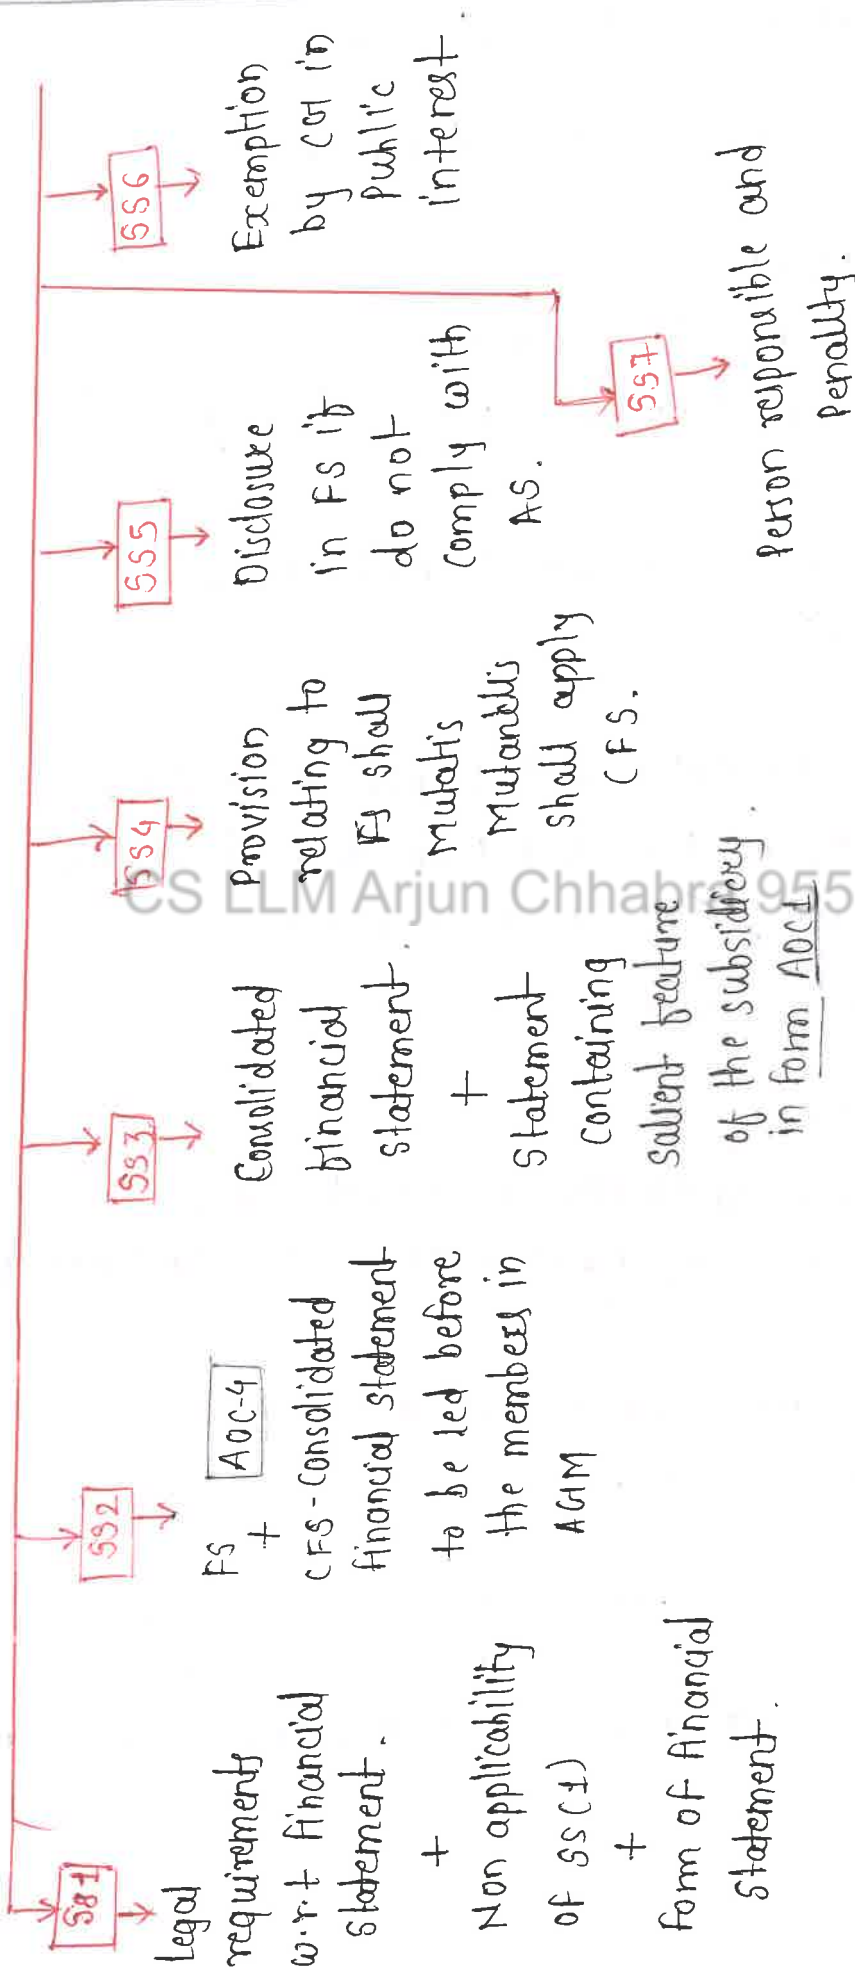 SS1
Legal
requirements
w.r.t financial
statement.
+
Non applicability
of SS(1)
+
Form of financial
statement.
SS2
FS
+
AOC-4
CFS-Consolidated
financial statement
to be led before
the members in
AGM
SS3
Consolidated
financial
statement.
+
Statement
containing
salient feature
of the subsidiary.
in form AOC1
SS4
Provision
relating to
FS shall
Mutatis
Mutandis
shall apply
CFS.
SS5
Disclosure
in FS if
do not
comply with
AS.
SS6
Exemption
by CG in
Public
interest
SS7
Person responsible and
Penality.
CS LLM Arjun Chhabra 955